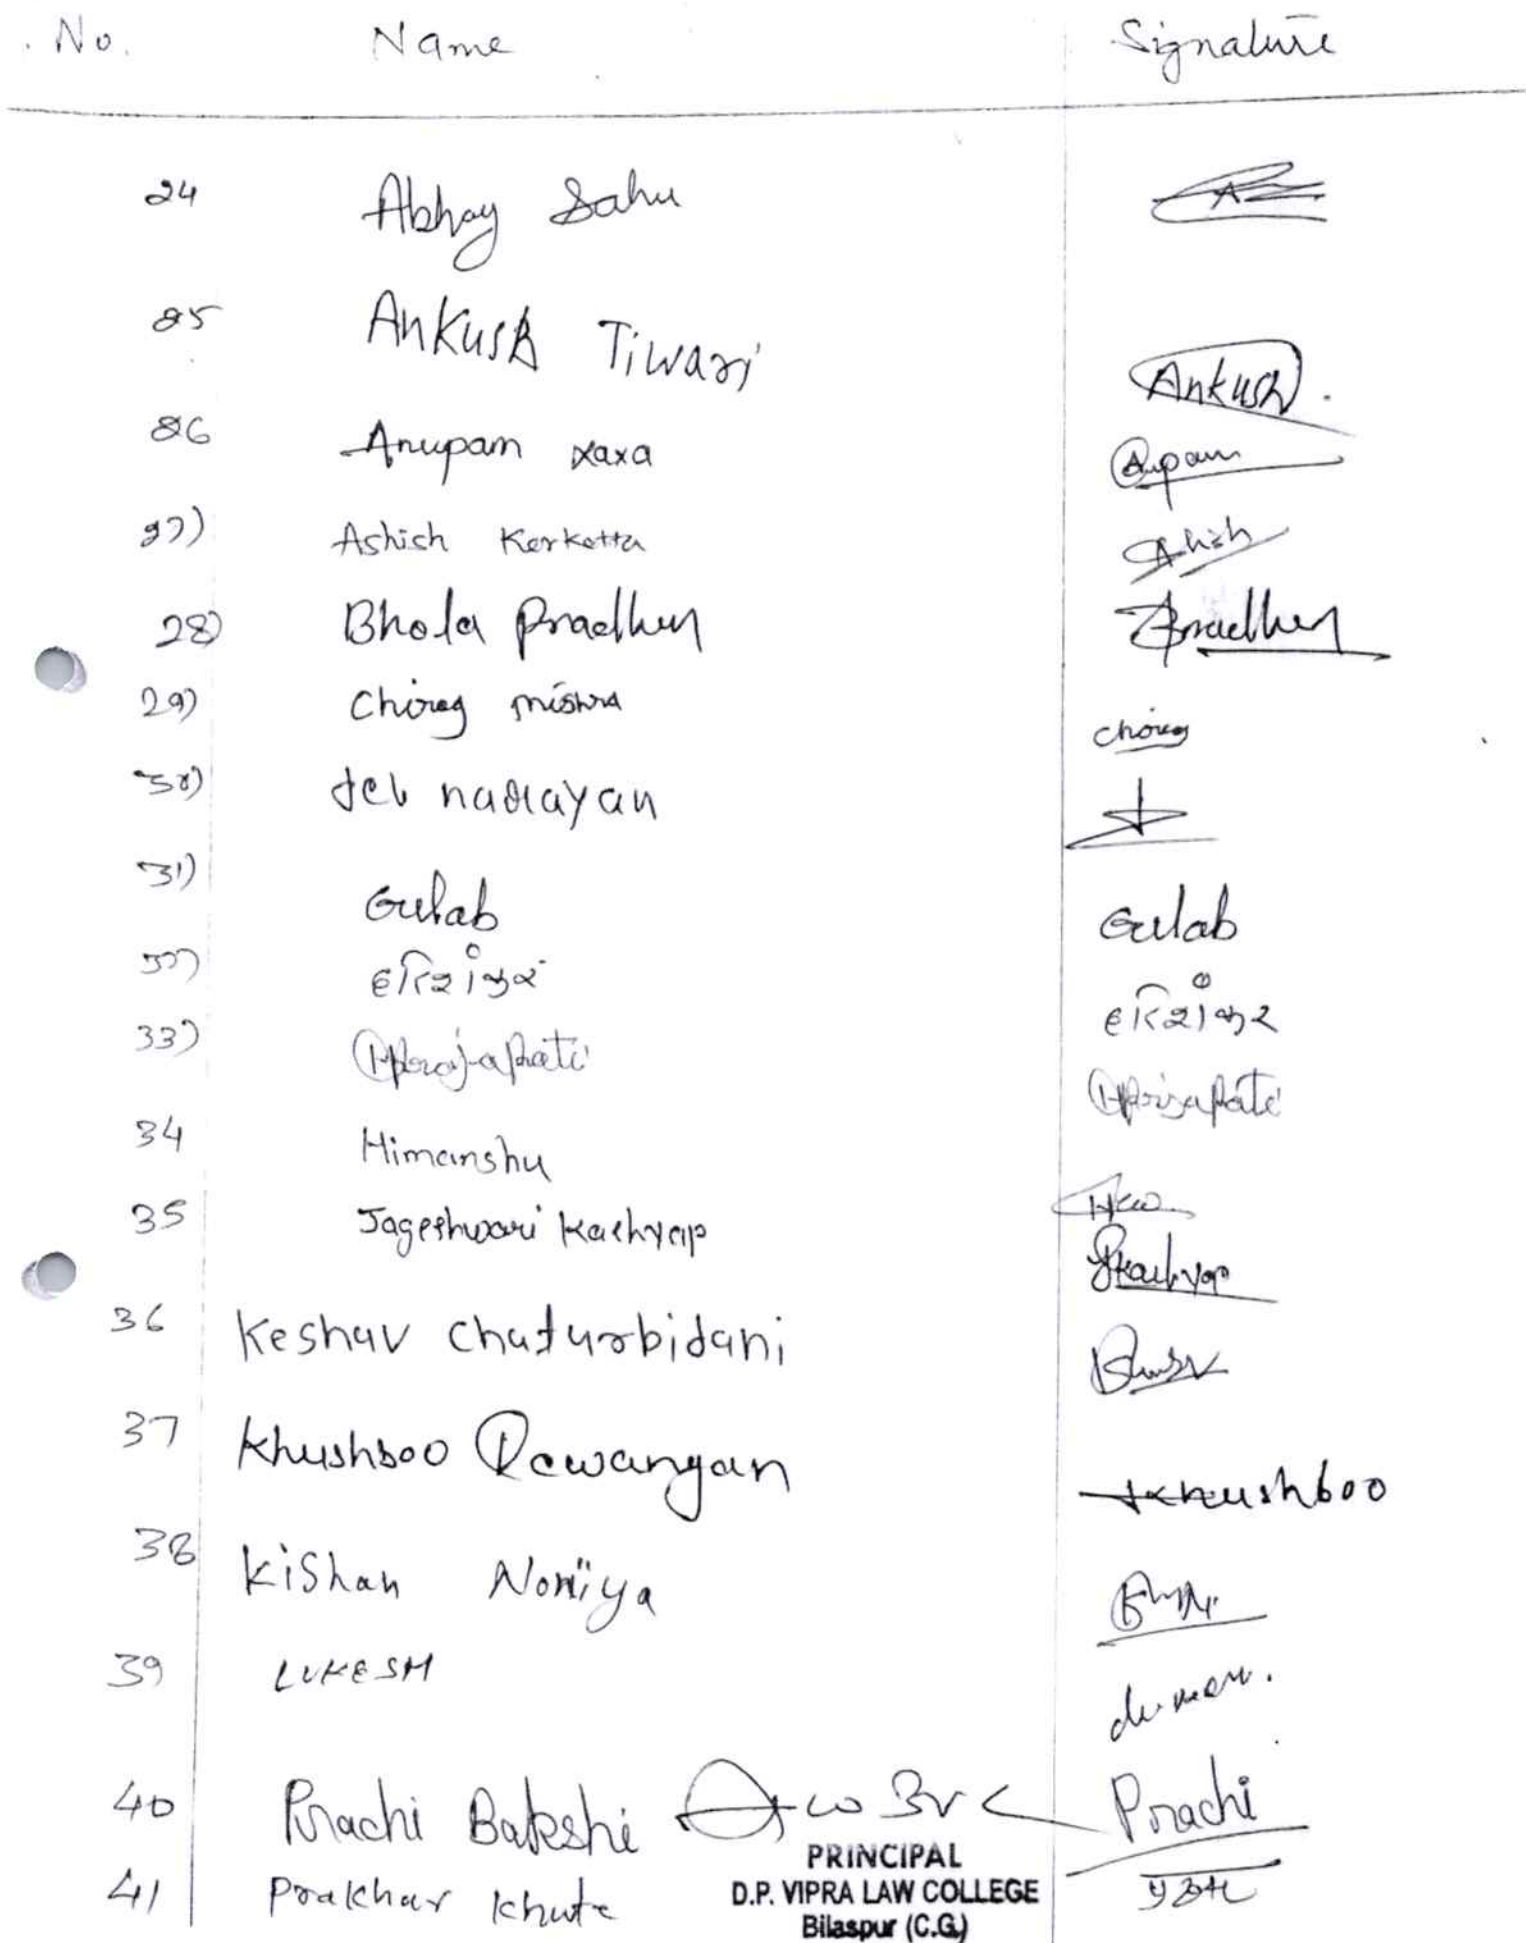 No. Name Signature
24 Abhay Sahu
25 Ankush Tiwari Ankush.
26 Anupam xaxa Anupam
27) Ashish Kerketta Ashish
28) Bhola Pradhan Pradhan
29) Chirag mishra Chirag
30) narayan
31) Gulab Gulab
32) हरिशंकर हरिशंकर
33) Hprajapati Hprajapati
34 Himanshu
35 Jageshwari Kashyap JKashyap
36 Keshav Chaturbidani
37 Khushboo Dewangan Khushboo
38 Kishan
39 LUKESH
40 Prachi Bakshi Prachi
PRINCIPAL
D.P. VIPRA LAW COLLEGE
Bilaspur (C.G.)
41 Prakhar Khute